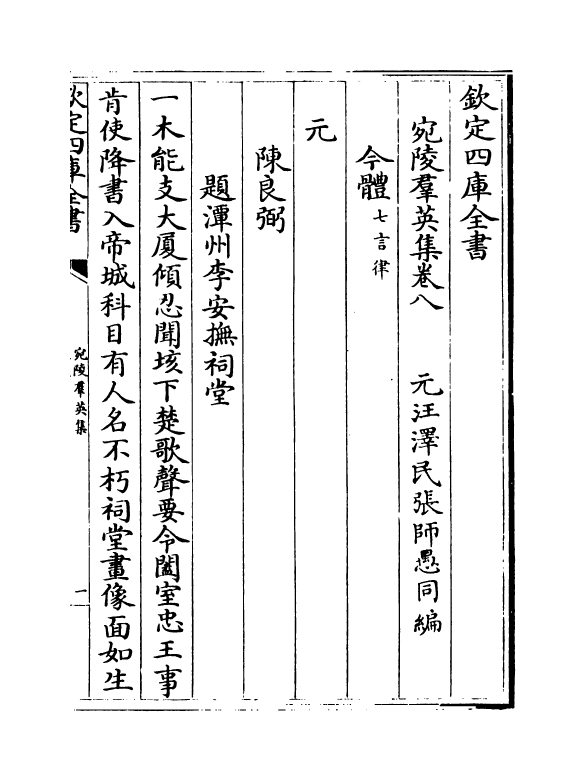 欽定四庫全書
宛陵羣英集卷八　　元汪澤民張師愚同編
今體七言律
元
陳良弼
題潭州李安撫祠堂
一木能支大厦傾忍聞垓下楚歌聲要令闔室忠王事
肯使降書入帝城科目有人名不朽祠堂畫像面如生
欽定四庫全書
宛陵羣英集
一